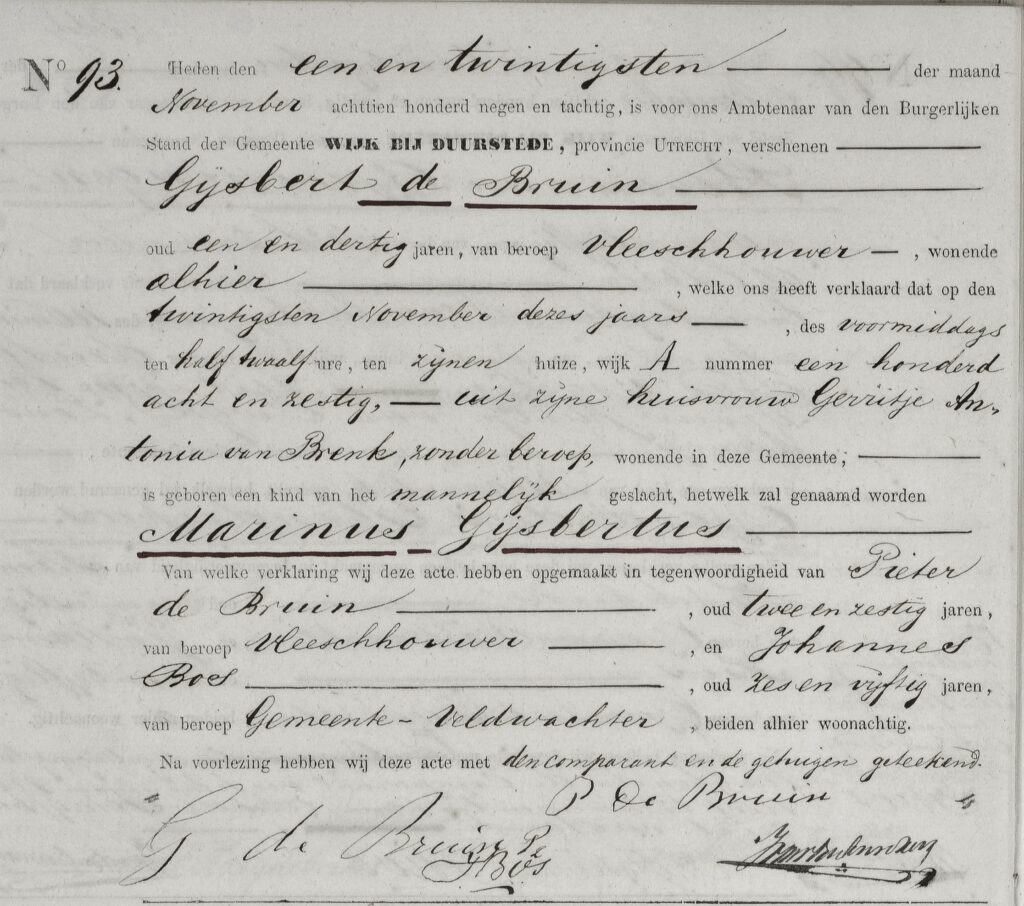 No 93. Heden den een en twintigsten der maand
November achttien honderd negen en tachtig, is voor ons Ambtenaar van den Burgerlijken
Stand der Gemeente WIJK BIJ DUURSTEDE, provincie UTRECHT, verschenen
Gijsbert de Bruin
oud een en dertig jaren, van beroep Vleeschhouwer —, wonende
alhier , welke ons heeft verklaard dat op den
twintigsten November dezes jaars — , des voormiddags
ten half twaalf ure, ten zijnen huize, wijk A nummer een honderd
acht en zestig, — uit zijne huisvrouw Gerritje An-
tonia van Brenk, zonder beroep, wonende in deze Gemeente,
is geboren een kind van het mannelijk geslacht, hetwelk zal genaamd worden
Marinus Gijsbertus
Van welke verklaring wij deze acte hebben opgemaakt in tegenwoordigheid van Pieter
de Bruin , oud twee en zestig jaren,
van beroep Vleeschhouwer , en Johannes
Bos , oud zes en vijftig jaren,
van beroep Gemeente-Veldwachter , beiden alhier woonachtig.
Na voorlezing hebben wij deze acte met den comparant en de getuigen geteekend.
P de Bruin
G de Bruin Pz
J Bos